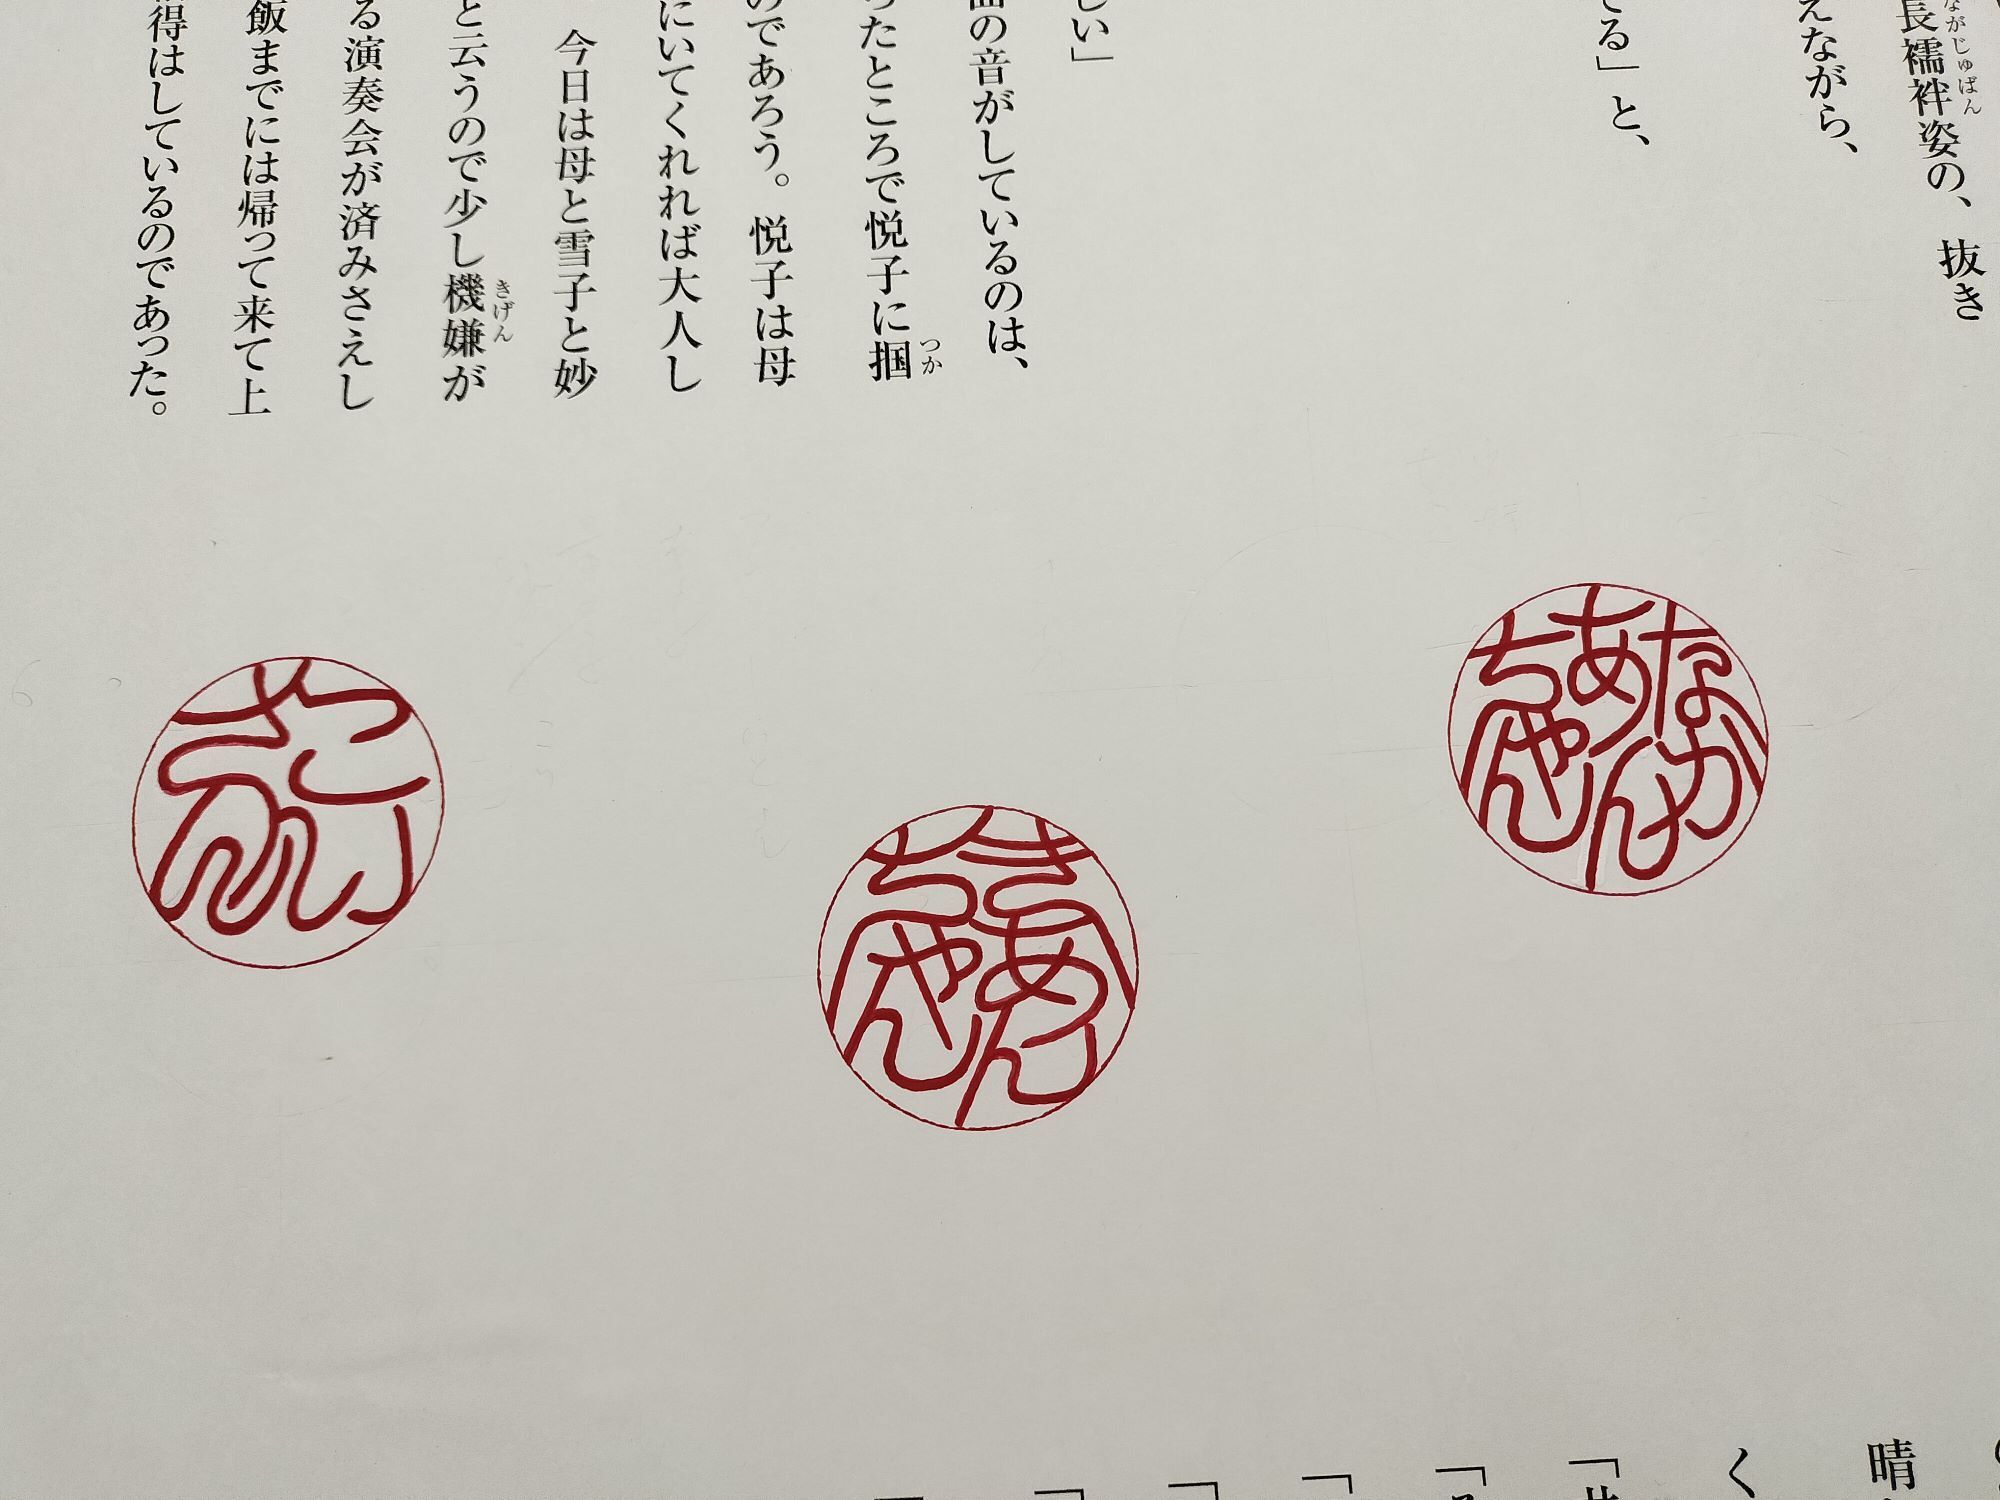 長襦袢姿の、抜き
ながじゅばん
えながら、
てる」と、
しい」
の音がしているのは、
ったところで悦子に掴
つか
のであろう。悦子は母
にいてくれれば大人し
今日は母と雪子と妙
と云うので少し機嫌が
きげん
る演奏会が済みさえし
飯までには帰って来て上
得はしているのであった。
なかあんちゃん
きあんちゃん
こいさん
晴
く